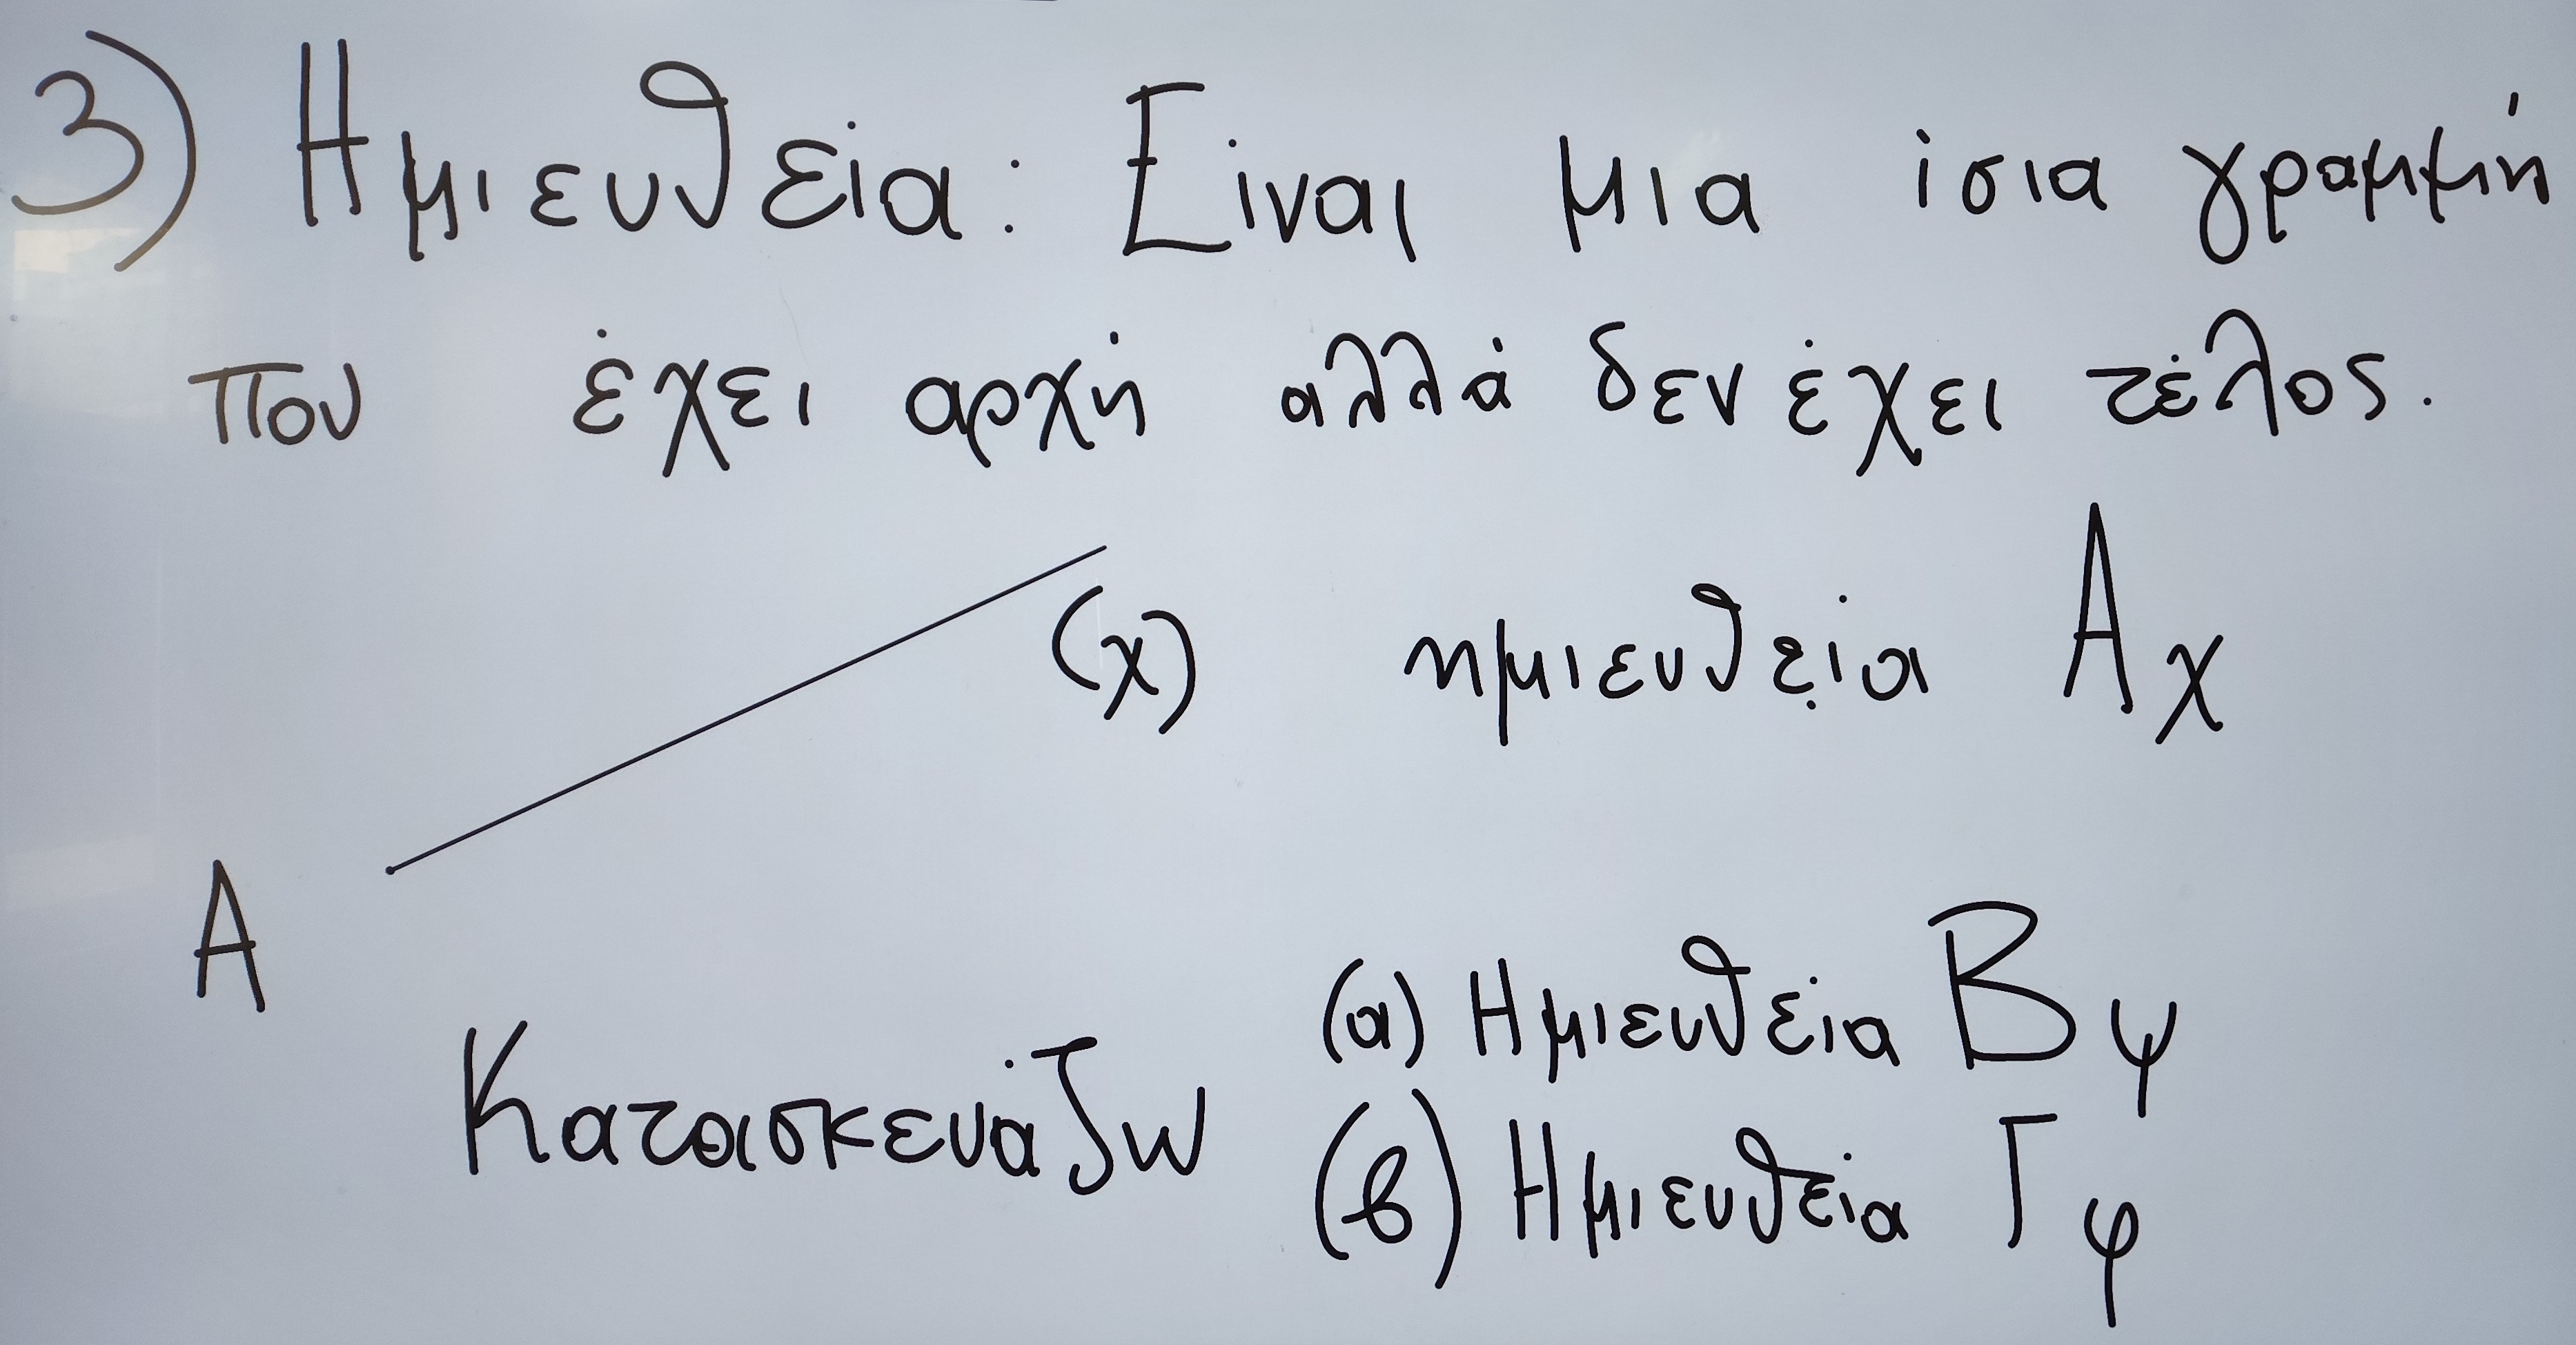 3) Ημιευθεία: Είναι μια ίσια γραμμή
που έχει αρχή αλλά δεν έχει τέλος.
(χ) ημιευθεία Αχ
Α
Κατασκευάζω
(α) Ημιευθεία Βψ
(β) Ημιευθεία Γφ